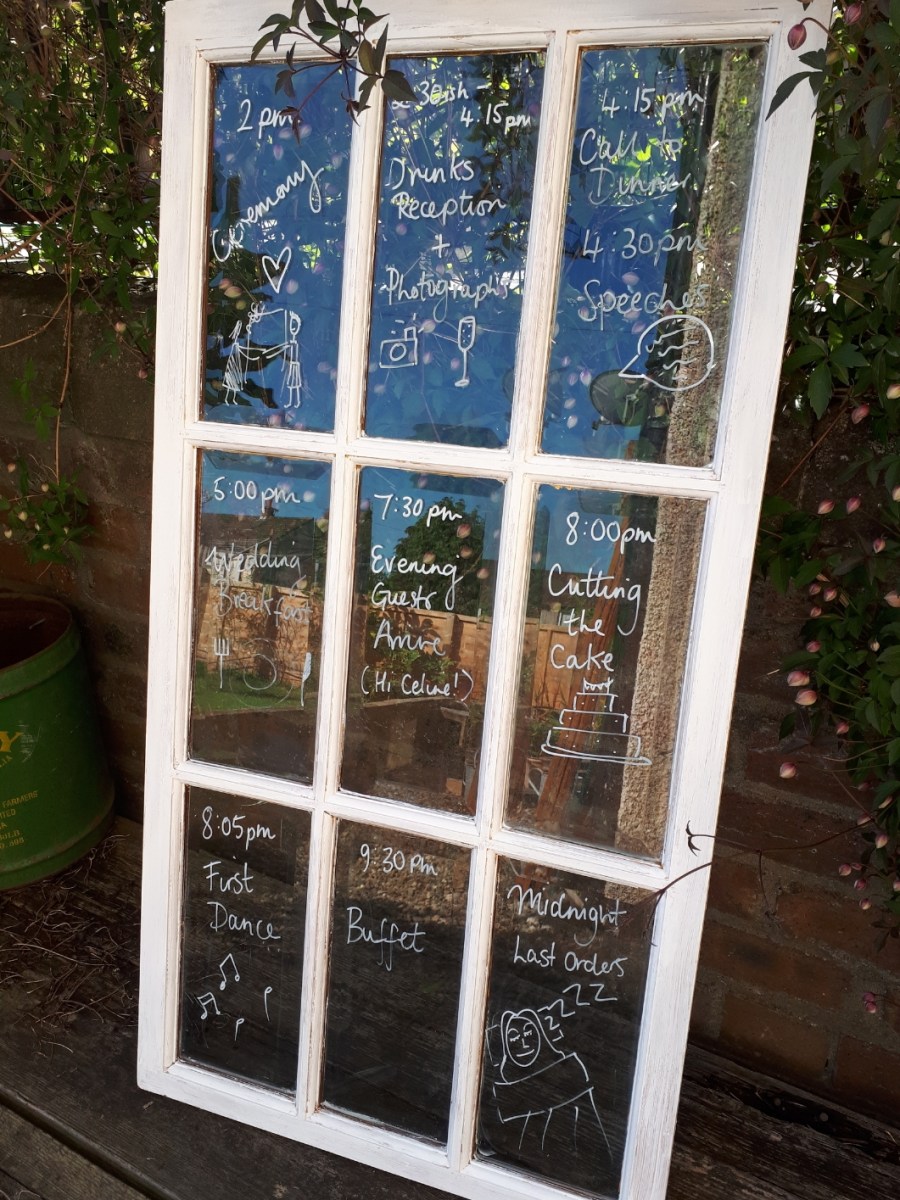 2pm
Ceremony
30ish -
4.15pm
Drinks
Reception
+
Photographs
4.15pm
Call to
Dinner
4.30pm
Speeches
5:00pm
Wedding
Breakfast
7:30pm
Evening
Guests
Arrive
(Hi Celine!)
8:00pm
Cutting
the
Cake
8:05pm
First
Dance
9:30pm
Buffet
Midnight
Last Orders
ZZZZZ
Y